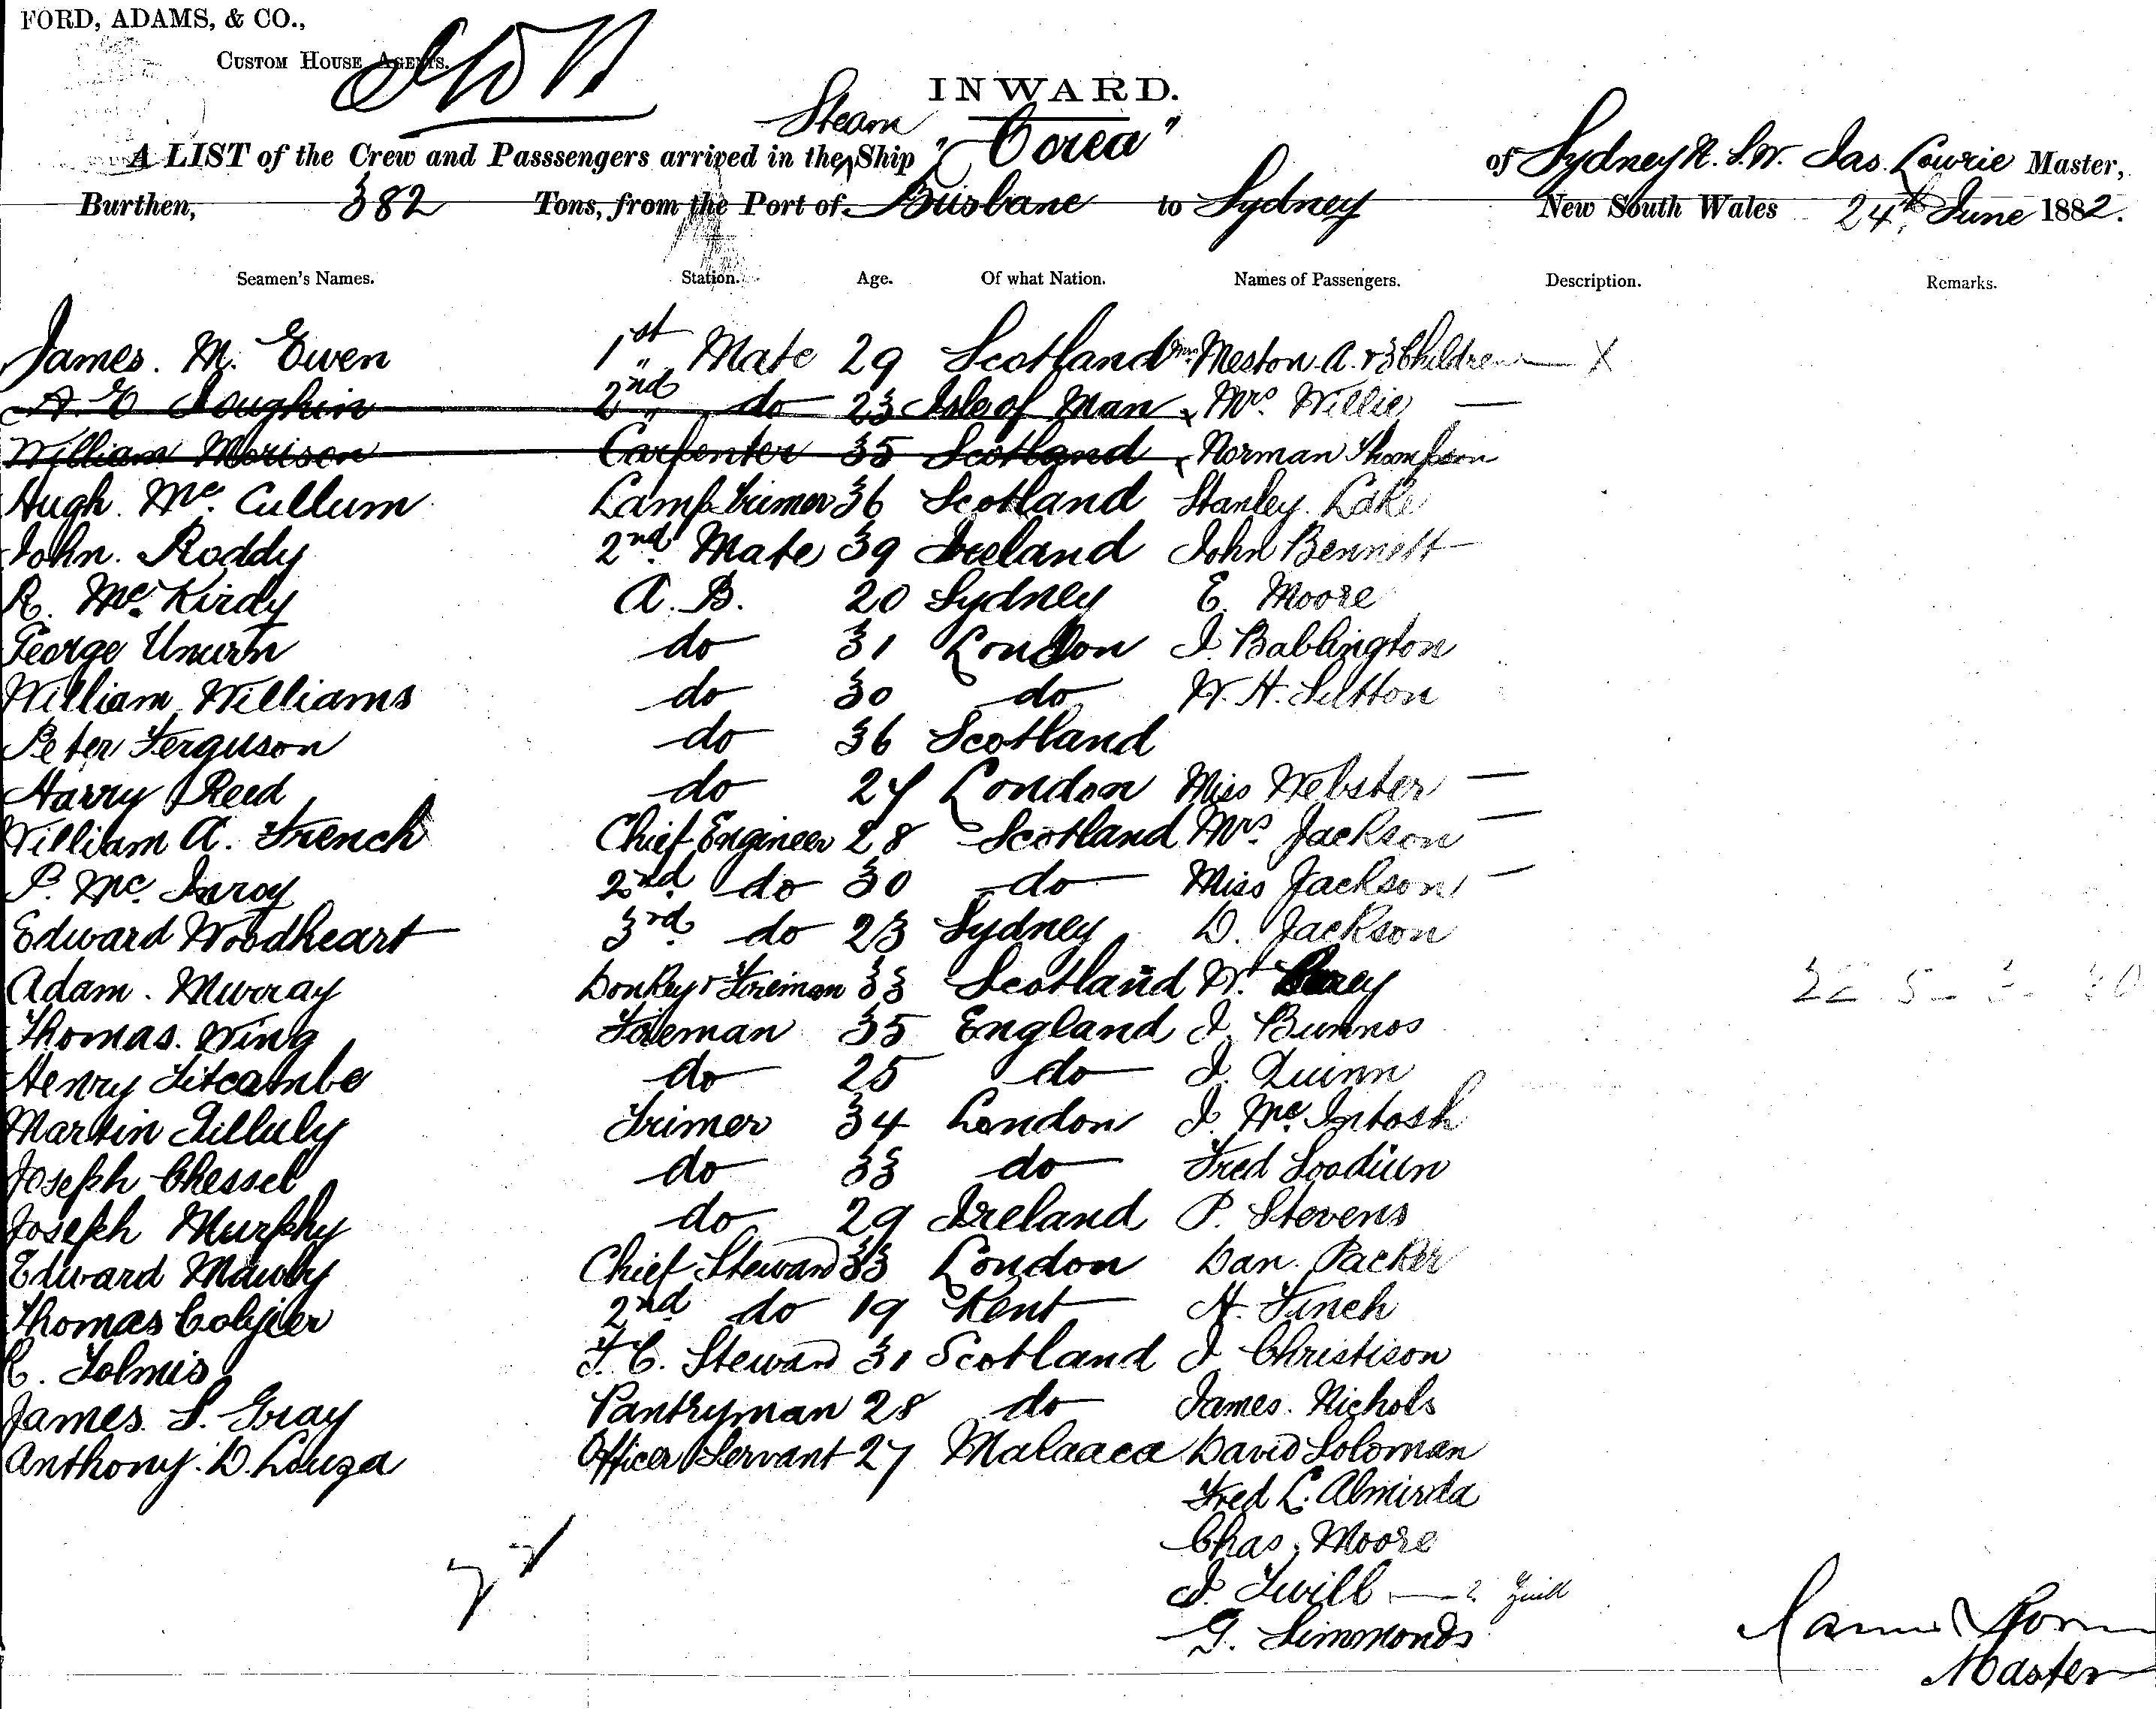 FORD, ADAMS, & CO.,
CUSTOM HOUSE AGENTS.
INWARD.
Steam
A LIST of the Crew and Passsengers arrived in the Ship "Corea" of Sydney N. S. W. Jas. Lowrie Master,
Burthen, 382 Tons, from the Port of Brisbane to Sydney New South Wales 24th June 1882.
Seamen's Names. Station. Age. Of what Nation. Names of Passengers. Description. Remarks.
James. M. Ewen 1st Mate 29 Scotland Mrs Meston. A. & 3 Children X
A. E Loughin 2nd do 23 Isle of Man x Mrs. Willie
William Morison Carpenter 35 Scotland x Norman Thompson
Hugh. Mc. Cullum Lamp trimer 36 Scotland Stanley. Lake
John. Roddy 2nd Mate 39 Ireland John Bennett
R. Mc. Kirdy A. B. 20 Sydney E. Moore
George Unurin do 31 London J. Babbington
William Williams do 30 do W. H. Sutton
Peter Ferguson do 36 Scotland
Harry Reed do 27 London Miss Webster
William A. French Chief Engineer 28 Scotland Mrs. Jackson
P. Mc. Inroy 2nd do 30 do Miss Jackson
Edward Woodheart 3rd do 23 Sydney D. Jackson
Adam. Murray Donkey & Fireman 33 Scotland W.
Thomas. Wing Foreman 35 England J. Bunnos
Henry Titcambe do 25 do J. Quinn
Martin Gilluly Trimer 34 London J. Mc. Intosh
Joseph Chessel do 33 do Fred Loodiun
Joseph Murphy do 29 Ireland P. Stevens
Edward Mawby Chief Steward 33 London Dan. Packer
Thomas Colyier 2nd do 19 Kent H. Finch
C. Tolmis F. C. Steward 31 Scotland J. Christison
James. S. Gray Pantryman 28 do James. Nichols
Anthony. D. Louza Officer Servant 27 Malaaca David Soloman
Fred L. Almirda
Chas. Moore
J. Twill ? Guill
G. Simmonds
Master